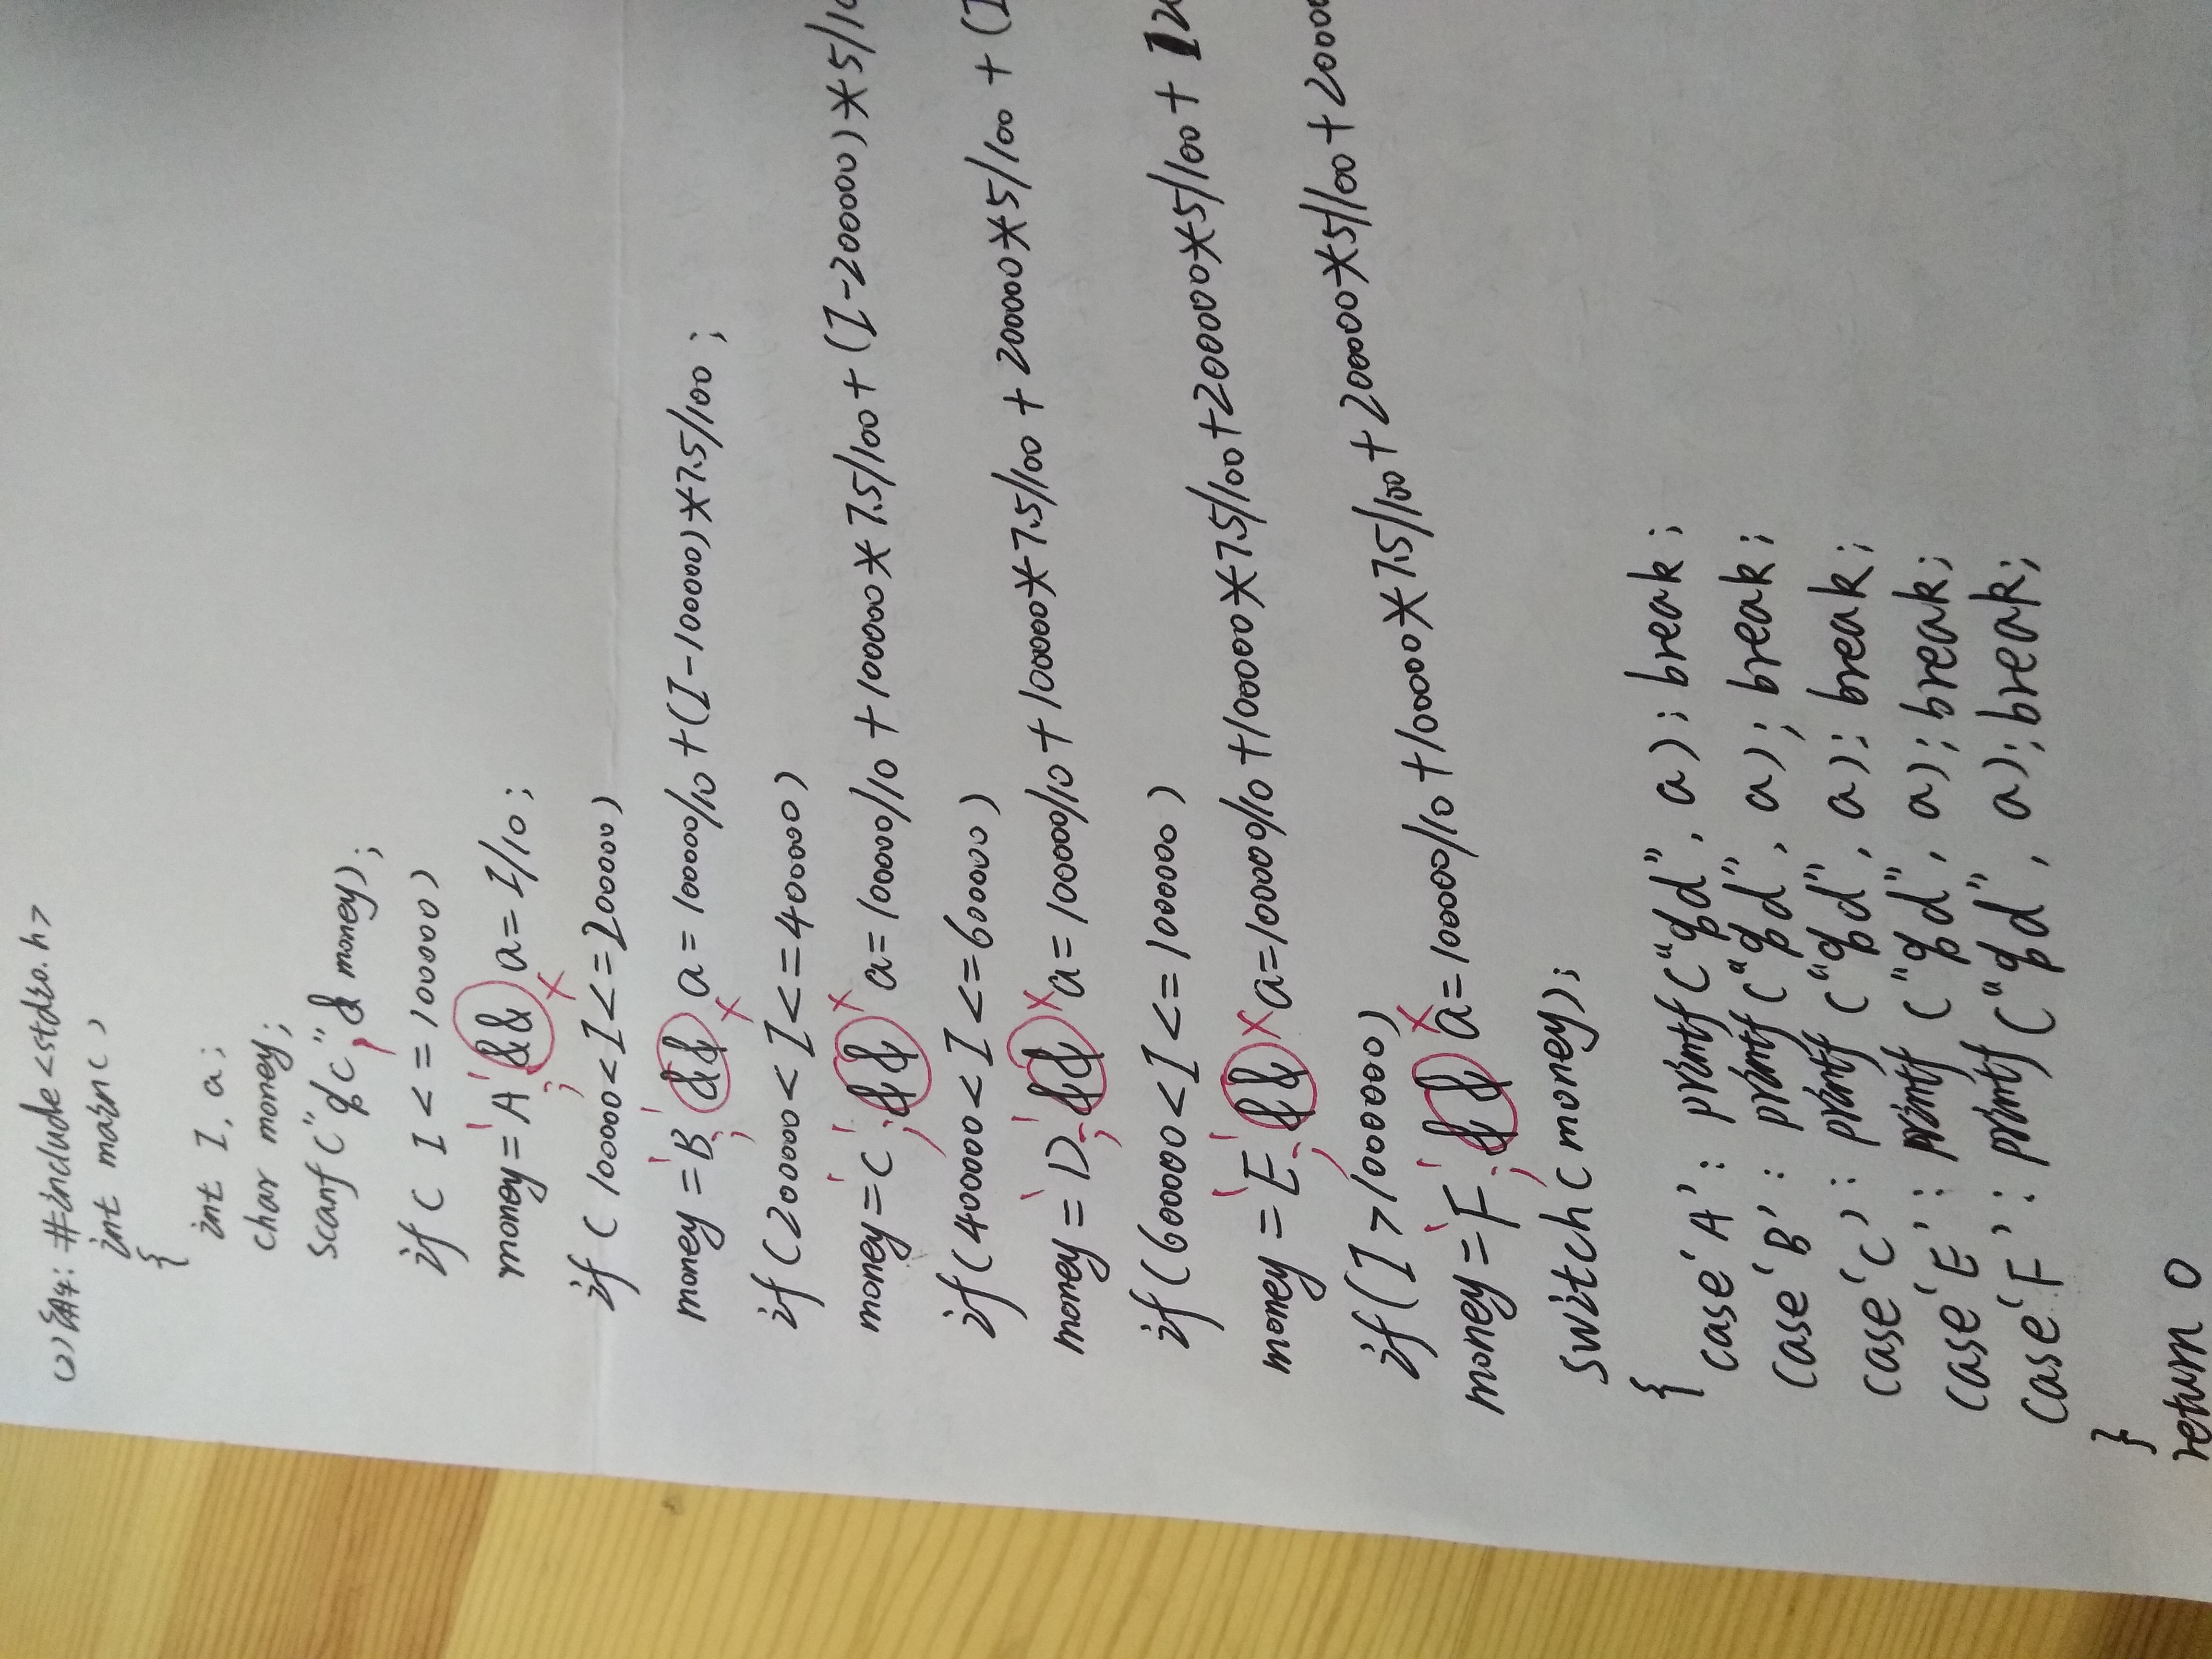 (2) 解: #include <stdio.h>
int main( )
{
int I, a;
char money;
scanf ("%c", & money);
if ( I <= 100000)
money = 'A'; && a = I/10;
if ( 100000 < I <= 200000)
money = 'B'; && a = 100000/10 + (I-100000) * 7.5/100;
if (200000 < I <= 400000)
money = 'C'; && a = 100000/10 + 100000 * 7.5/100 + (I-200000) * 5/10
if (400000 < I <= 600000)
money = 'D'; && a = 100000/10 + 100000 * 7.5/100 + 200000 * 5/100 + (I
if (600000 < I <= 1000000)
money = 'E'; && a = 100000/10 + 100000 * 7.5/100 + 200000 * 5/100 +
if (I > 1000000)
money = 'F'; && a = 100000/10 + 100000 * 7.5/100 + 200000 * 5/100 + 20000
switch (money);
{
case 'A': printf ("%d", a); break;
case 'B': printf ("%d", a); break;
case 'C': printf ("%d", a); break;
case 'E': printf ("%d", a); break;
case 'F': printf ("%d", a); break;
}
return 0